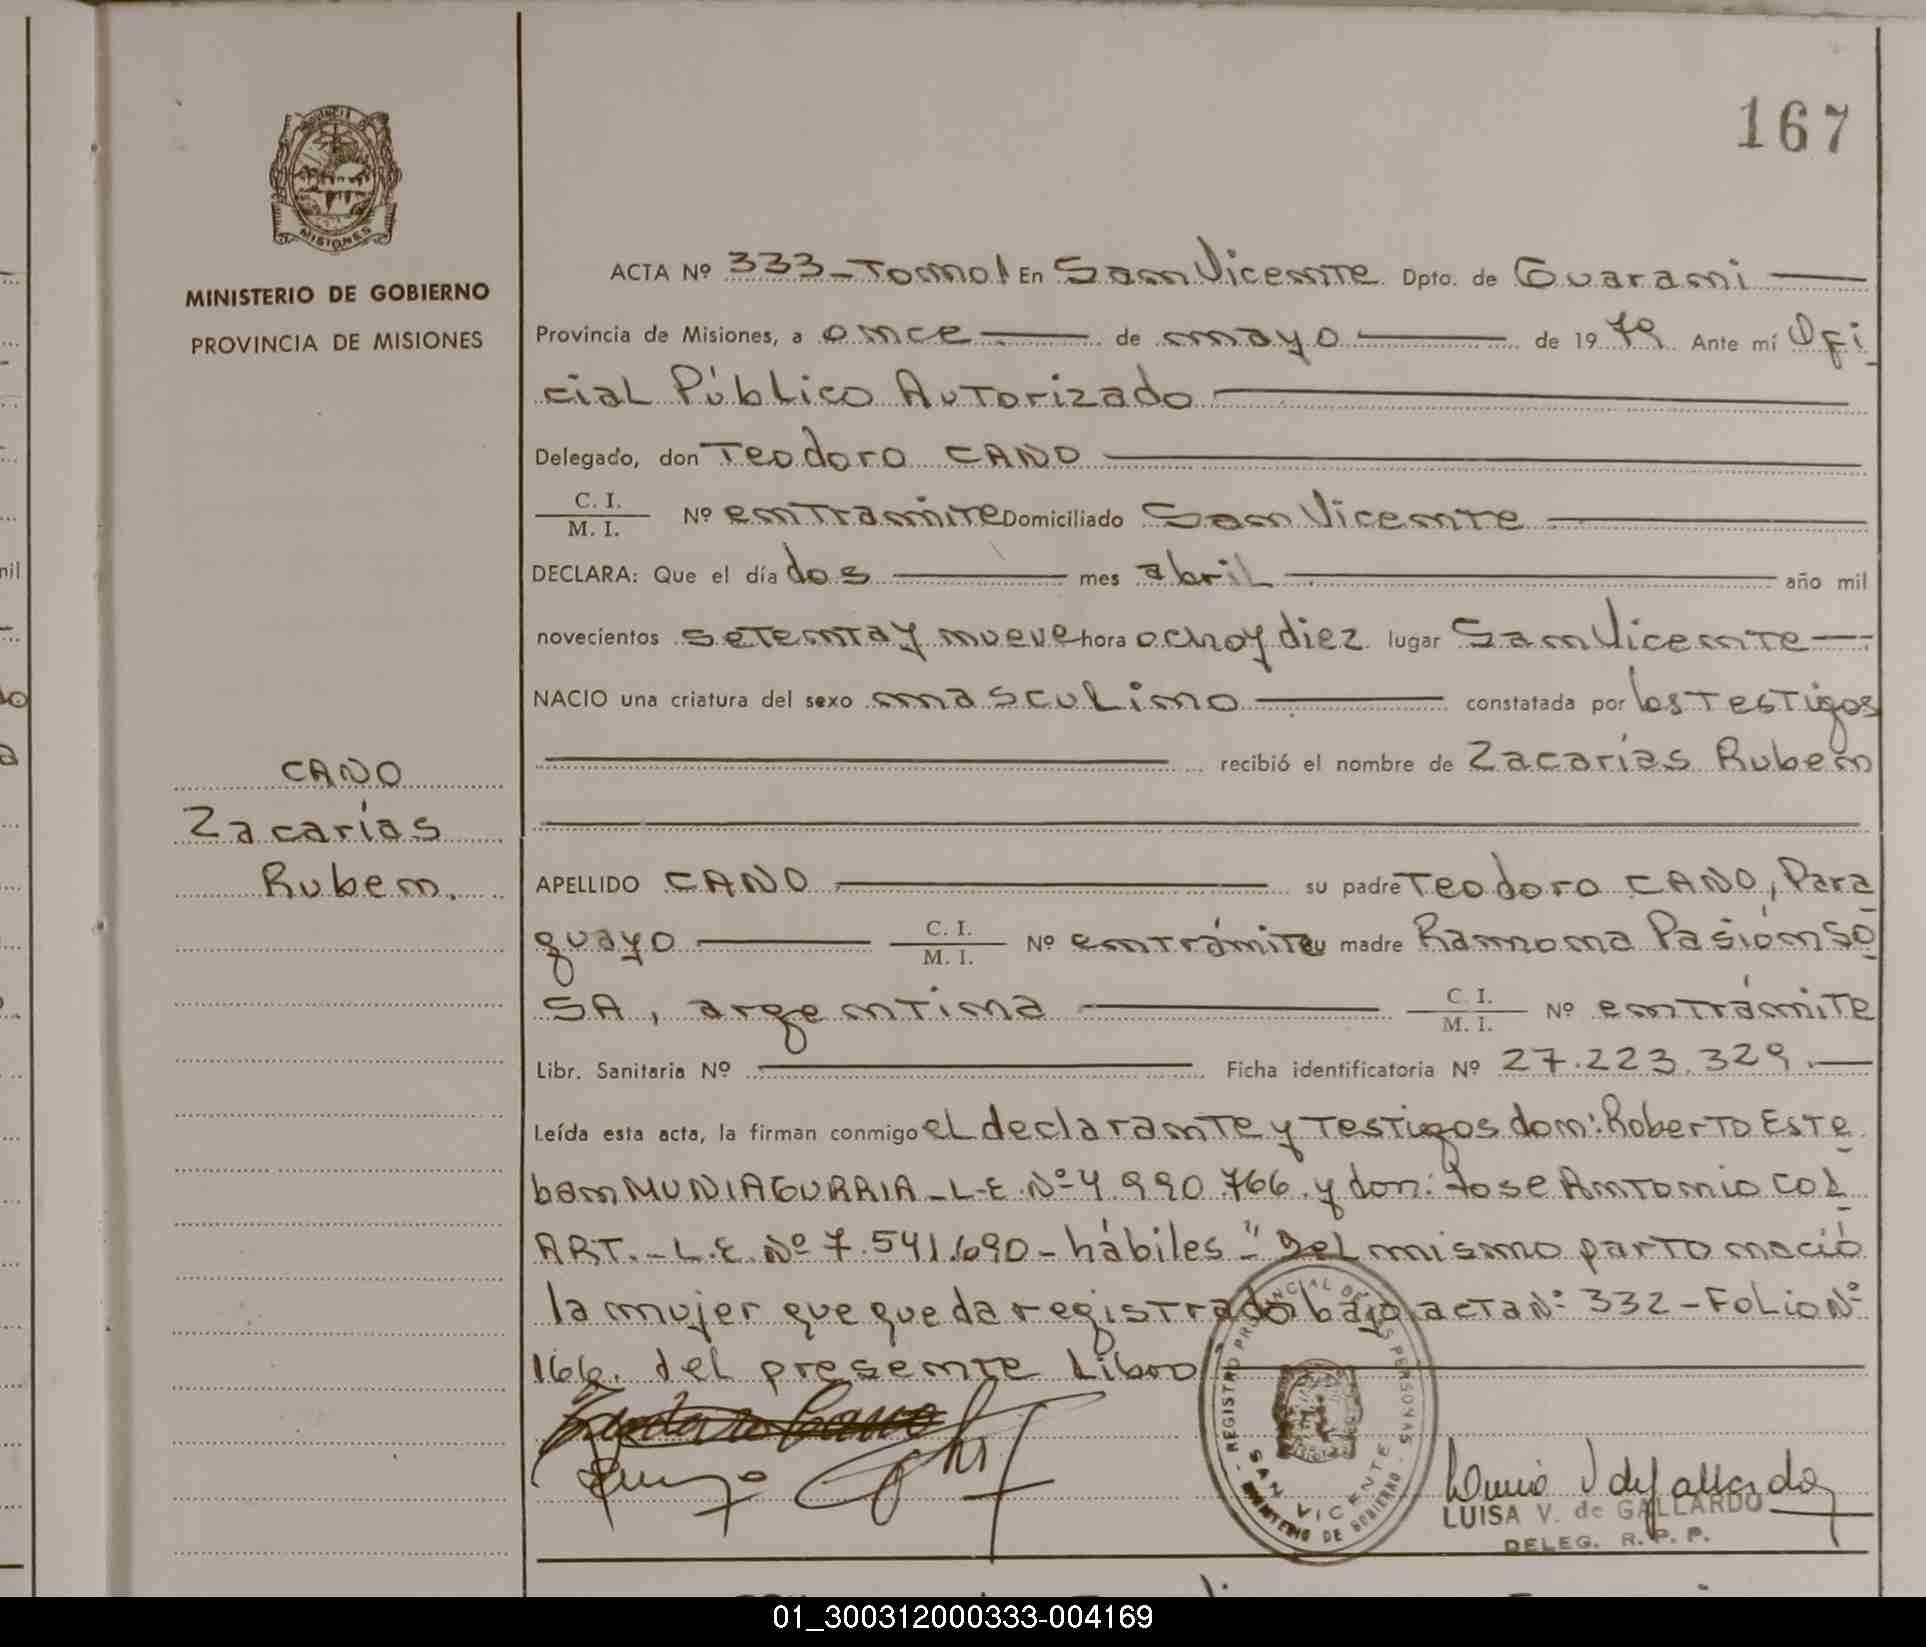 167
PROVINCIA DE
MISIONES
MINISTERIO DE GOBIERNO
PROVINCIA DE MISIONES
CANO
Zacarías
Ruben.
ACTA Nº 333-Tomo I En San Vicente Dpto. de Guarani
Provincia de Misiones, a once de mayo de 1979 Ante mí Ofi
cial Público Autorizado
Delegado, don Teodoro CANO
C. I.
M. I. Nº en tramite Domiciliado San Vicente
DECLARA: Que el día dos mes abril año mil
novecientos setenta y nueve hora ocho y diez lugar San Vicente
NACIO una criatura del sexo masculino constatada por los Testigos
recibió el nombre de Zacarías Ruben
APELLIDO CANO su padre Teodoro CANO, Para
guayo C. I.
M. I. Nº en trámite y madre Ramona Pasión SO
SA, argentina C. I.
M. I. Nº en trámite
Libr. Sanitaria Nº Ficha identificatoria Nº 27.223.329.
Leída esta acta, la firman conmigo el declarante y Testigos don: Roberto Este
ban MUNIAGURRIA - L.E. Nº 4.990.766. y don: Jose Antonio COL
ART. - L.E. Nº 7.541.690 - hábiles." Del mismo parto nació
la mujer que queda registrado bajo acta Nº 332 - Folio Nº
166. del presente Libro
REGISTRO PROVINCIAL DE LAS PERSONAS
SAN VICENTE
MINISTERIO DE GOBIERNO
LUISA V. de GALLARDO
DELEG. R. P. P.
01_300312000333-004169